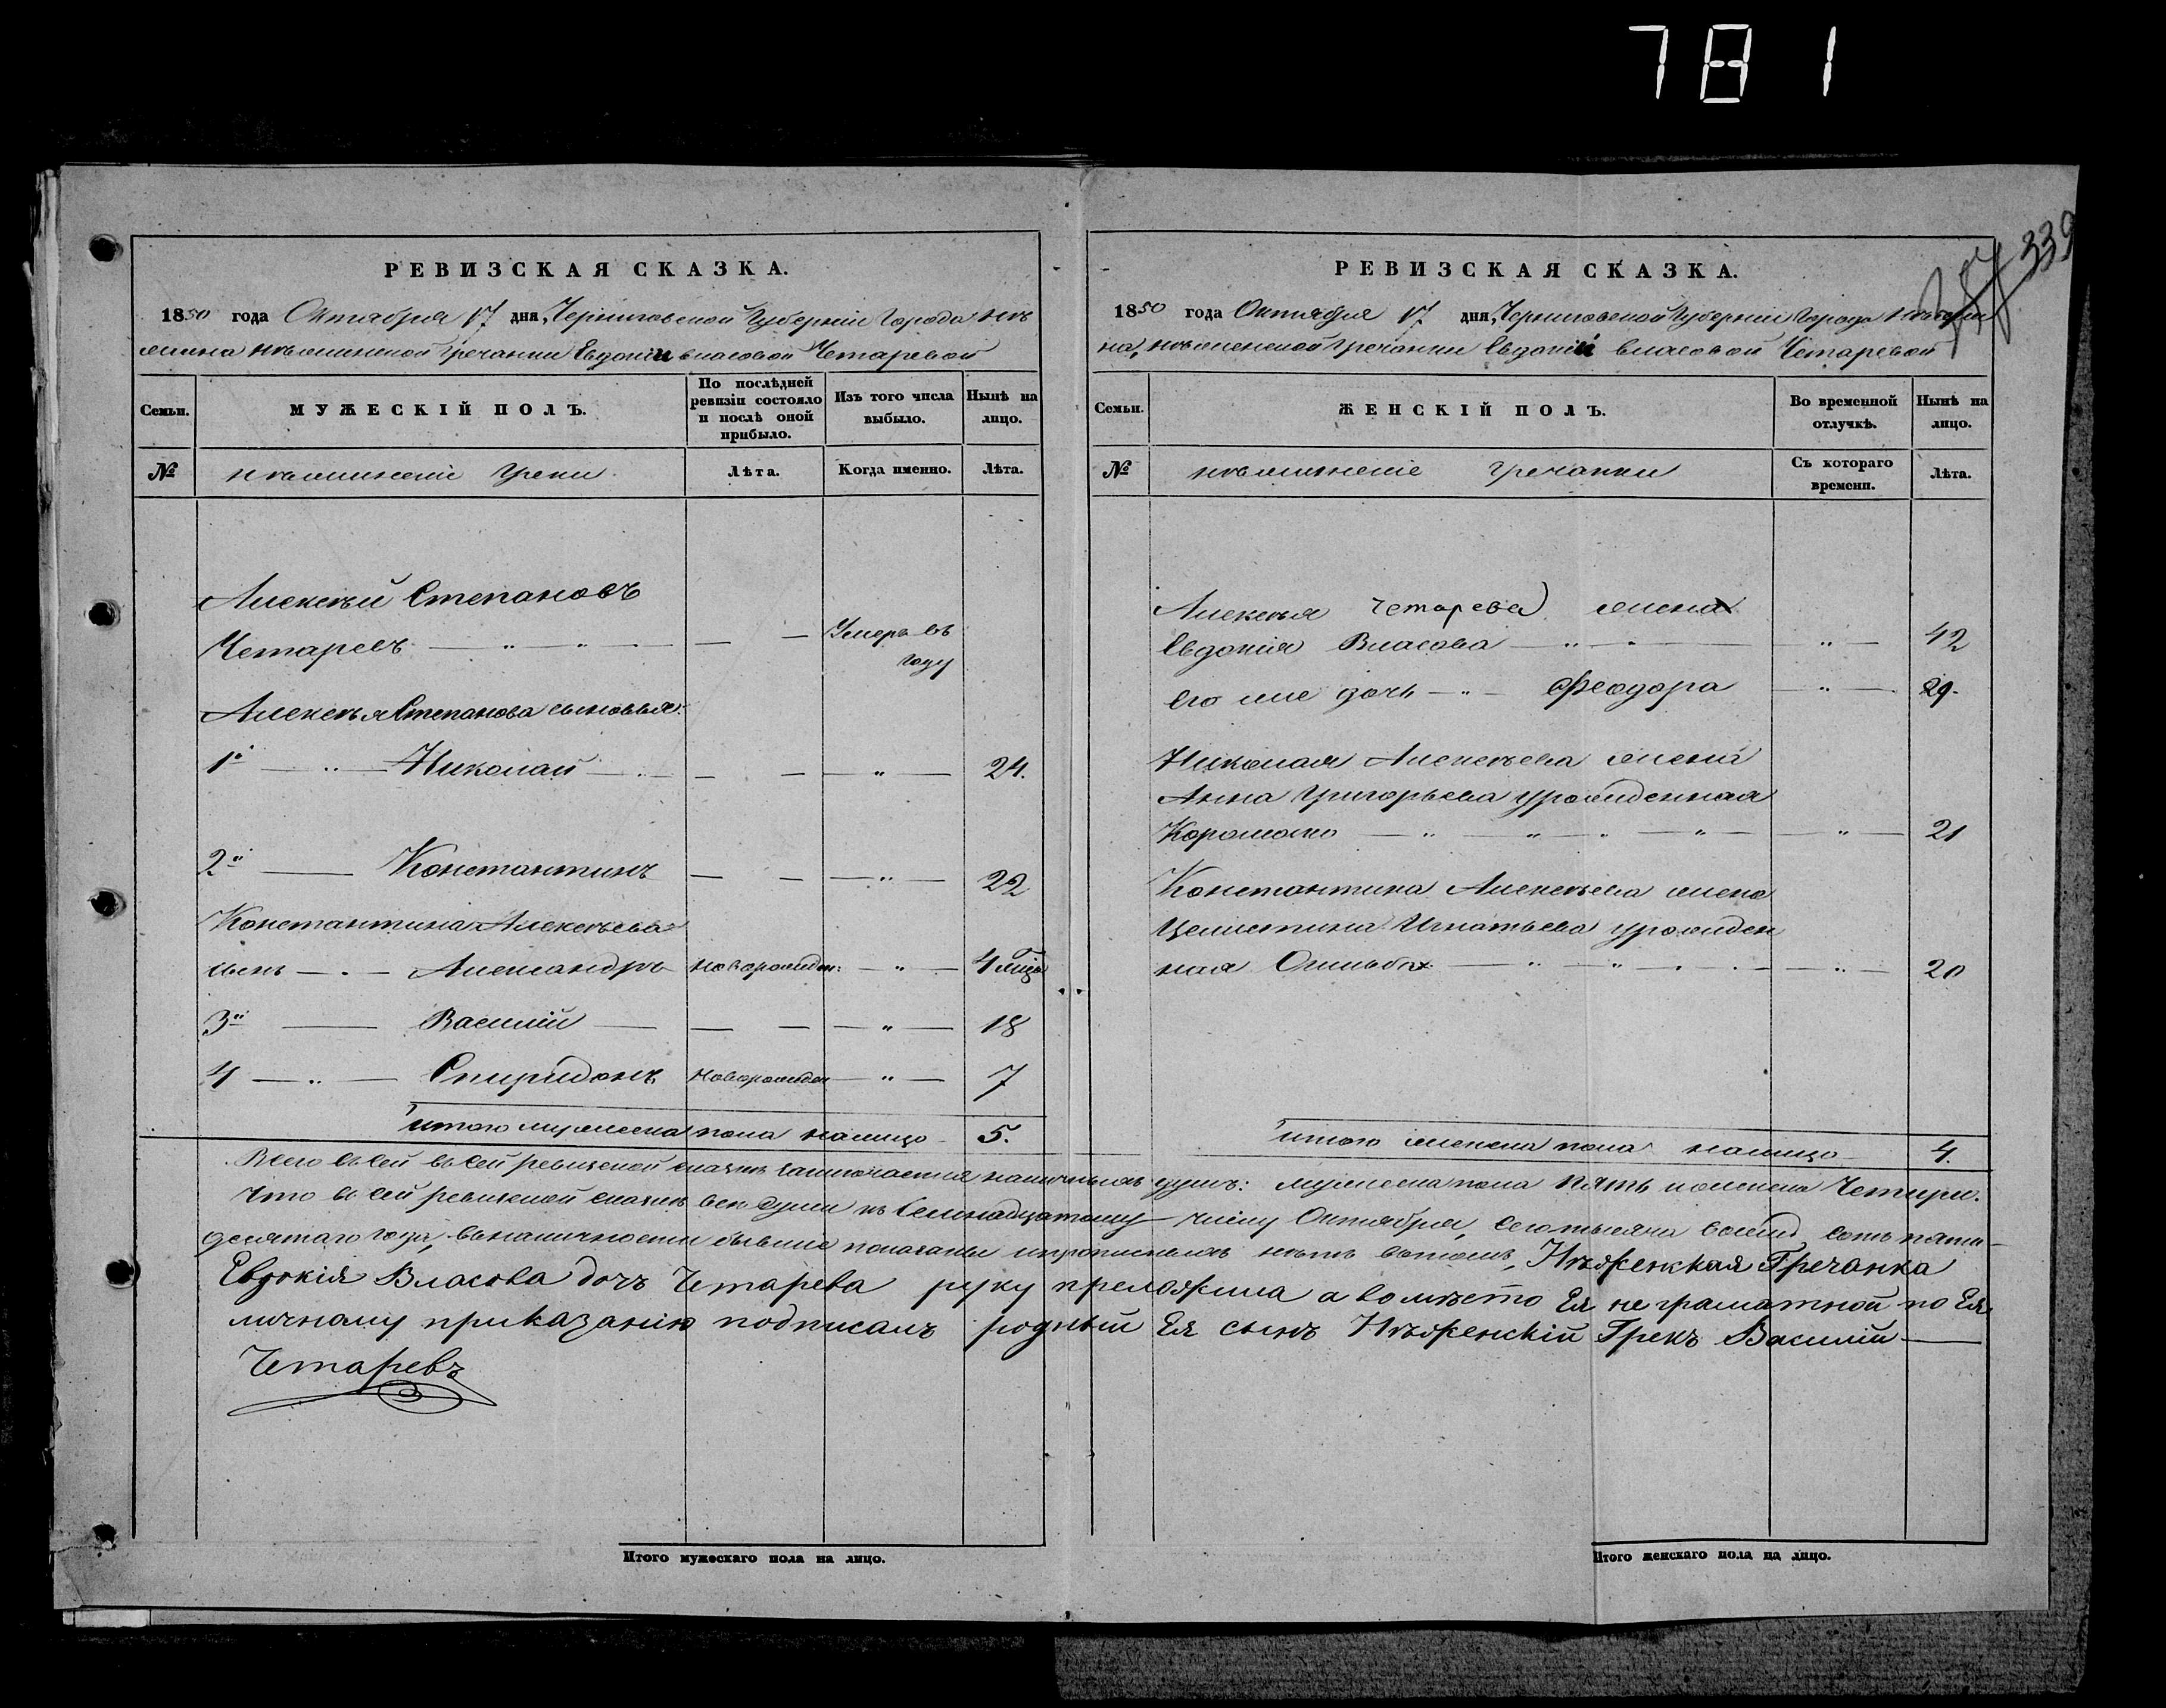 781
339
РЕВИЗСКАЯ СКАЗКА.
1850 года Октября 17 дня, Черниговской Губерніи Города Нѣ
жина нѣжинской Гречанки Евдокіи Власовой Четаревой
Семьи.
МУЖЕСКІЙ ПОЛЪ.
По послѣдней ревизіи состояло и послѣ оной прибыло.
Изъ того числа выбыло.
Нынѣ на лицо.
№
нѣжинскіе Греки
Лѣта.
Когда именно.
Лѣта.
Алексѣй Степановъ
Четаревъ — — Умеръ въ году
Алексѣя Степанова сыновья:
1й Николай — — — 24.
2й Константинъ — — — 22
Константина Алексѣева
сынъ Александръ новорожден: — 4 мѣся
3й Василій — — — 18
4 Спиридонъ новорожден — 7
итого мужеска пола налицо 5.
РЕВИЗСКАЯ СКАЗКА.
1850 года Октября 17 дня, Черниговской Губерніи Города Нѣжи
на, нѣженской Гречанки Евдокіи Власовой Четаревой
Семьи.
ЖЕНСКІЙ ПОЛЪ.
Во временной отлучкѣ.
Нынѣ на лицо.
№
нѣжинскіе Гречанки
Съ котораго времени.
Лѣта.
Алексѣя Четарева жена
Евдокія Власова — 42
Его же дочь Феодора — 29.
Николая Алексѣева жена
Анна Григорьева урожденная
— 21
Константина Алексѣева жена
Целистина Игнатьева урожден
ная — 20
итого женска пола налицо 4.
Всего въ сей въ сей ревизской сказкѣ заключается наличныхъ душъ: мужеска пола пять и женска Четыри.
Что въ сей ревизской сказкѣ всѣ души къ Семнадцатому числу Октября, сего тысяча восемь сотъ пяти-
десятаго года, въ наличности бывшіе показаны и прописныхъ нѣтъ въ томъ, Нѣженская Гречанка
Евдокія Власова дочь Четарева руку преложила а въ мѣсто Ея не граматной по Ея
личному приказанію подписалъ родный Ея сынъ Нѣженскій Грекъ Василій
Четаревъ
Итого мужескаго пола на лицо.
Итого женскаго пола на лицо.